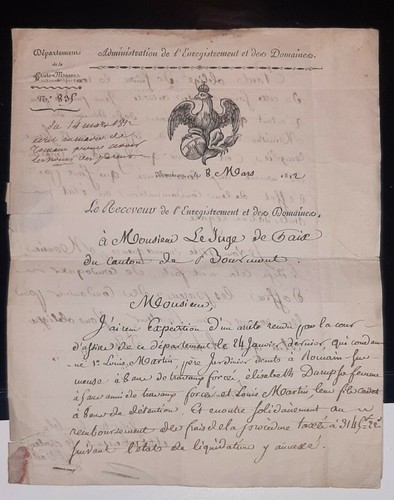 Département
de la
Haute-Marne
Administration de l'Enregistrement et des Domaines.
N.° 895
du 14 mars 1812
écrit au maire de
Romain pour avoir
8 Mars 1812
Le Receveur de l'Enregistrement et des Domaines,
à Monsieur Le Juge de Paix
du Canton de Bourmont
Monsieur,
J'ai reçu Expédition d'un arrêté rendu par la cour
d'assise de ce département le 24 Janvier dernier qui condam-
ne 1.° Louis Martin père Jardinier demt à Romain-sur
meuse à 8 ans de travaux forcés élisabeth femme
à 5 ans de travaux forcés et Louis Martin leur fils cadet
à 8 ans de détention. Et encore solidairement au
remboursement des frais de la procédure taxés à 314
suivant l'état de liquidation y annexé.